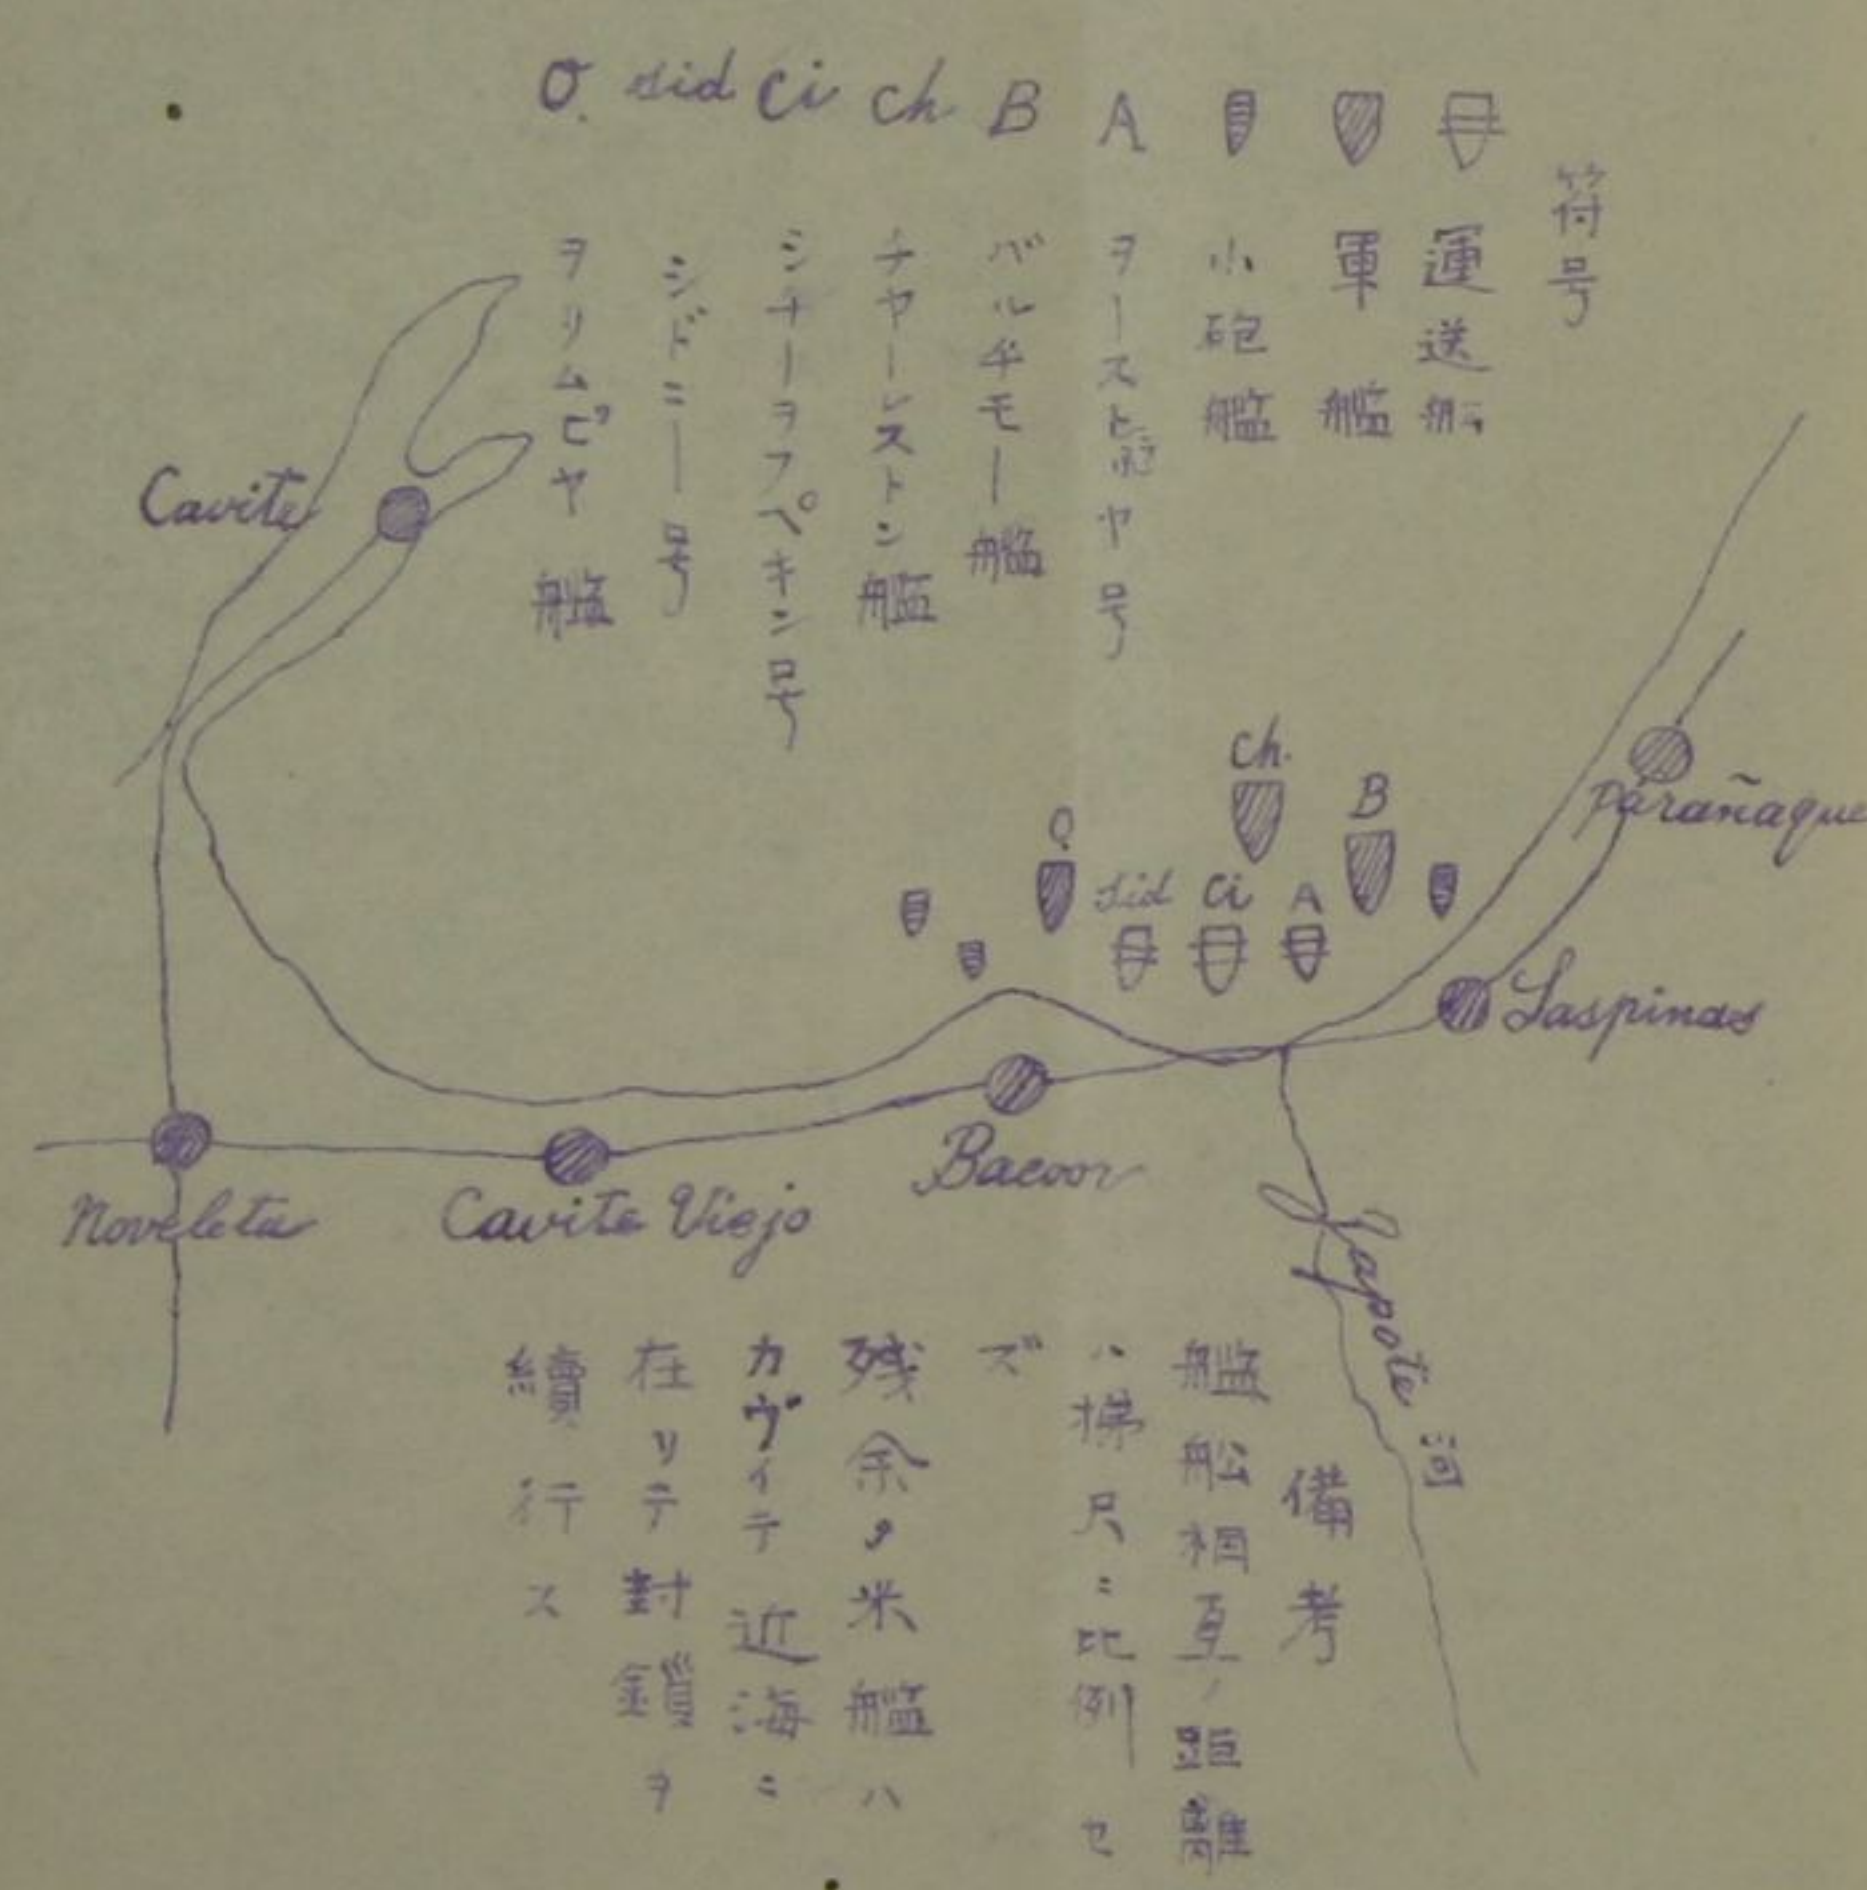 符号
運送船
軍艦
小砲艦
A ヲーストラリヤ号
B バルチモー艦
ch チヤーレストン艦
Ci シチーヲフペキン号
sid シドニー号
O. ヲリムピヤ艦
Cavite
Ch.
B
O.
sid
Ci
A
Parañaque
Laspinas
Bacoor
Noveleta
Cavite Viejo
Zapote河
備考
艦船相互ノ距離
ハ梯尺ニ比例セ
ズ
残余ノ米艦ハ
カヴイテ近海ニ
在リテ封鎖ヲ
續行ス